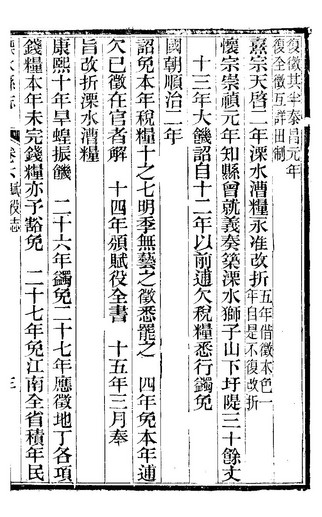 復徵其半泰昌元年
復全徵互詳田制
熹宗天啓二年溧水漕糧永准改折五年借徵本色一
年自是不復改折
懷宗崇禎元年知縣曾就義奏築溧水獅子山下圩隄三十餘丈
十三年大饑詔自十二年以前逋欠稅糧悉行蠲免
國朝順治二年
詔免本年稅糧十之七明季無藝之徵悉罷之　四年免本年逋
欠已徵在官者解　十四年頒賦役全書　十五年三月奉
旨改折溧水漕糧
康熙十年旱蝗振饑　二十六年蠲免二十七年應徵地丁各項
錢糧本年未完錢糧亦予豁免　二十七年免江南全省積年民
溧水縣志
卷六賦役志
三